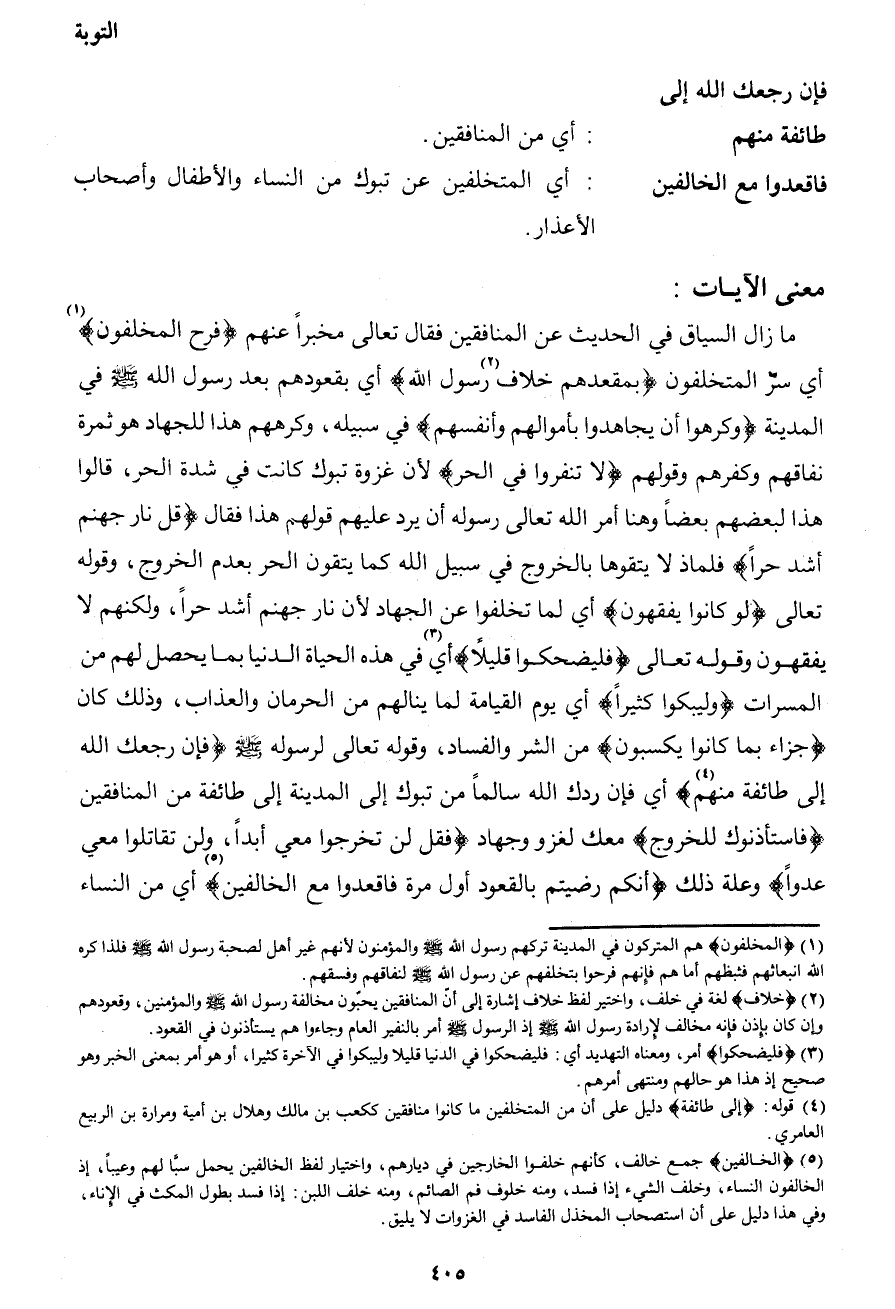 التوبة
فإن رجعك الله إلى
طائفة منهم : أي من المنافقين.
فاقعدوا مع الخالفين : أي المتخلفين عن تبوك من النساء والأطفال وأصحاب
الأعذار.
معنى الآيـات :
ما زال السياق في الحديث عن المنافقين فقال تعالى مخبراً عنهم ﴿فرح المخلفون﴾(١)
أي سرّ المتخلفون ﴿بمقعدهم خلاف(٢) رسول الله﴾ أي بقعودهم بعد رسول الله ﷺ في
المدينة ﴿وكرهوا أن يجاهدوا بأموالهم وأنفسهم﴾ في سبيله، وكرههم هذا للجهاد هو ثمرة
نفاقهم وكفرهم وقولهم ﴿لا تنفروا في الحر﴾ لأن غزوة تبوك كانت في شدة الحر، قالوا
هذا لبعضهم بعضاً وهنا أمر الله تعالى رسوله أن يرد عليهم قولهم هذا فقال ﴿قل نار جهنم
أشد حراً﴾ فلماذ لا يتقوها بالخروج في سبيل الله كما يتقون الحر بعدم الخروج، وقوله
تعالى ﴿لو كانوا يفقهون﴾ أي لما تخلفوا عن الجهاد لأن نار جهنم أشد حراً، ولكنهم لا
يفقهـون وقـولـه تعـالى ﴿فليضحكـوا قليلًا﴾(٣) أي في هذه الحياة الـدنيا بمـا يحصل لهم من
المسرات ﴿وليبكوا كثيراً﴾ أي يوم القيامة لما ينالهم من الحرمان والعذاب، وذلك كان
﴿جزاء بما كانوا يكسبون﴾ من الشر والفساد، وقوله تعالى لرسوله ﷺ ﴿فإن رجعك الله
إلى طائفة منهم(٤)﴾ أي فإن ردك الله سالماً من تبوك إلى المدينة إلى طائفة من المنافقين
﴿فاستأذنوك للخروج﴾ معك لغزو وجهاد ﴿فقل لن تخرجوا معي أبداً، ولن تقاتلوا معي
عدواً﴾ وعلة ذلك ﴿أنكم رضيتم بالقعود أول مرة فاقعدوا مع الخالفين(٥)﴾ أي من النساء
(١) ﴿المخلفون﴾ هم المتركون في المدينة تركهم رسول الله ﷺ والمؤمنون لأنهم غير أهل لصحبة رسول الله ﷺ فلذا كره
الله انبعاثهم فثبطهم أما هم فإنهم فرحوا بتخلفهم عن رسول الله ﷺ لنفاقهم وفسقهم.
(٢) ﴿خلاف﴾ لغة في خلف، واختير لفظ خلاف إشارة إلى أنّ المنافقين يحبّون مخالفة رسول الله ﷺ والمؤمنين، وقعودهم
وإن كان بإذن فإنه مخالف لإرادة رسول الله ﷺ إذ الرسول ﷺ أمر بالنفير العام وجاءوا هم يستأذنون في القعود.
(٣) ﴿فليضحكوا﴾ أمر، ومعناه التهديد أي: فليضحكوا في الدنيا قليلا وليبكوا في الآخرة كثيرا، أو هو أمر بمعنى الخبر وهو
صحيح إذ هذا هو حالهم ومنتهى أمرهم.
(٤) قوله: ﴿إلى طائفة﴾ دليل على أن من المتخلفين ما كانوا منافقين ككعب بن مالك وهلال بن أمية ومرارة بن الربيع
العامري.
(٥) ﴿الخـالفين﴾ جمـع خالف، كأنهم خلفـوا الخارجين في ديارهم، واختيار لفظ الخالفين يحمل سبًّا لهم وعيباً، إذ
الخالفون النساء، وخلف الشيء إذا فسد، ومنه خلوف فم الصائم، ومنه خلف اللبن: إذا فسد بطول المكث في الإناء،
وفي هذا دليل على أن استصحاب المخذل الفاسد في الغزوات لا يليق.
٤٠٥